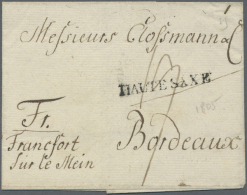 Messieurs Clossmann &
HAUTE SAXE
1805
Fr.
Bordeaux
Francfort
Sur le Mein